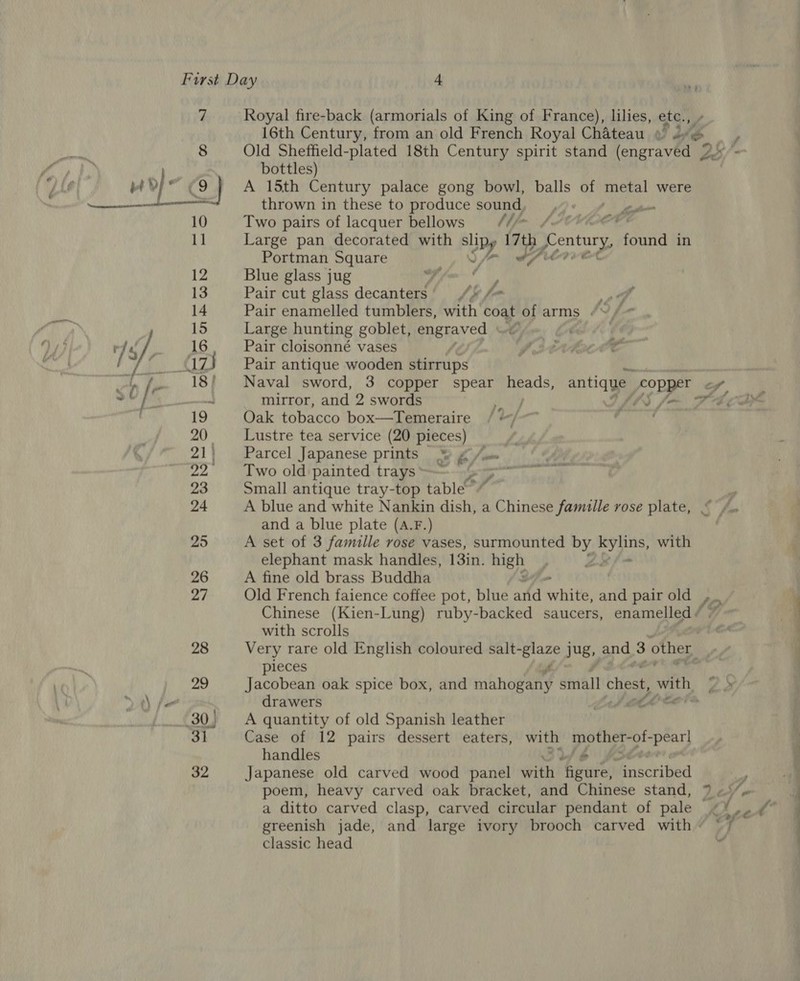 First Day 4
7 Royal fire-back (armorials of King of France), lilies, etc.,
16th Century, from an old French Royal Château
8 Old Sheffield-plated 18th Century spirit stand (engraved
bottles)
9 A 15th Century palace gong bowl, balls of metal were
thrown in these to produce sound
10 Two pairs of lacquer bellows
11 Large pan decorated with slipy 17th Century, found in
Portman Square
12 Blue glass jug
13 Pair cut glass decanters
14 Pair enamelled tumblers, with coat of arms
15 Large hunting goblet, engraved
16 Pair cloisonné vases
17 Pair antique wooden stirrups
18 Naval sword, 3 copper spear heads, antique copper
mirror, and 2 swords
19 Oak tobacco box—Temeraire
20 Lustre tea service (20 pieces)
21 Parcel Japanese prints
22 Two old painted trays
23 Small antique tray-top table
24 A blue and white Nankin dish, a Chinese famille rose plate,
and a blue plate (A.F.)
25 A set of 3 famille rose vases, surmounted by kylins, with
elephant mask handles, 13in. high
26 A fine old brass Buddha
27 Old French faience coffee pot, blue and white, and pair old
Chinese (Kien-Lung) ruby-backed saucers, enamelled
with scrolls
28 Very rare old English coloured salt-glaze jug, and 3 other
pieces
29 Jacobean oak spice box, and mahogany small chest, with
drawers
30 A quantity of old Spanish leather
31 Case of 12 pairs dessert eaters, with mother-of-pearl
handles
32 Japanese old carved wood panel with figure, inscribed
poem, heavy carved oak bracket, and Chinese stand,
a ditto carved clasp, carved circular pendant of pale
greenish jade, and large ivory brooch carved with
classic head